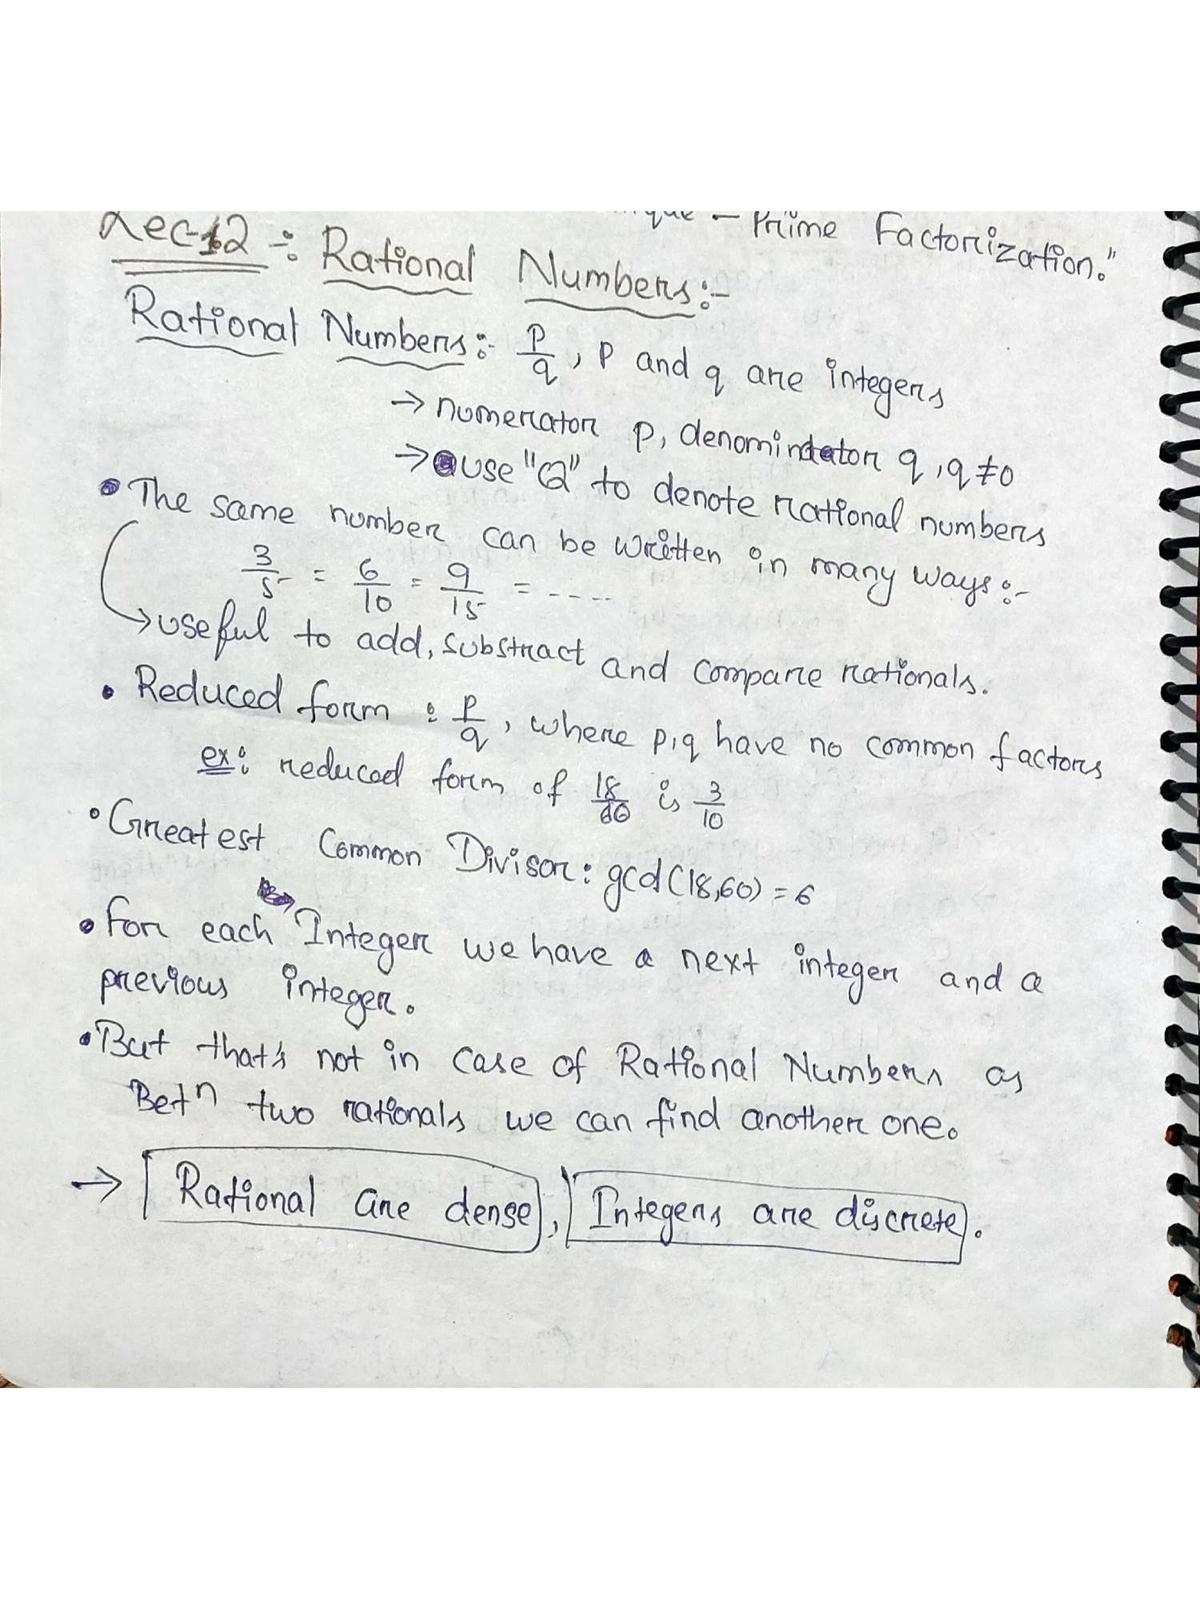 - Prime Factorization."
Lec-12 :- Rational Numbers:-
Rational Numbers:- p/q, p and q are integers
→ numerator p, denominator q, q≠0
→ use "Q" to denote rational numbers
• The same number can be written in many ways:-
3/5 = 6/10 = 9/15 = -----
→ useful to add, substract and compare rationals.
• Reduced form : p/q, where p,q have no common factors
ex: reduced form of 18/60 is 3/10
• Greatest Common Divisor: gcd(18,60) = 6
• For each Integer we have a next integer and a
previous integer.
• But that's not in case of Rational Numbers as
Betⁿ two rationals we can find another one.
→ Rational are dense, Integers are discrete.